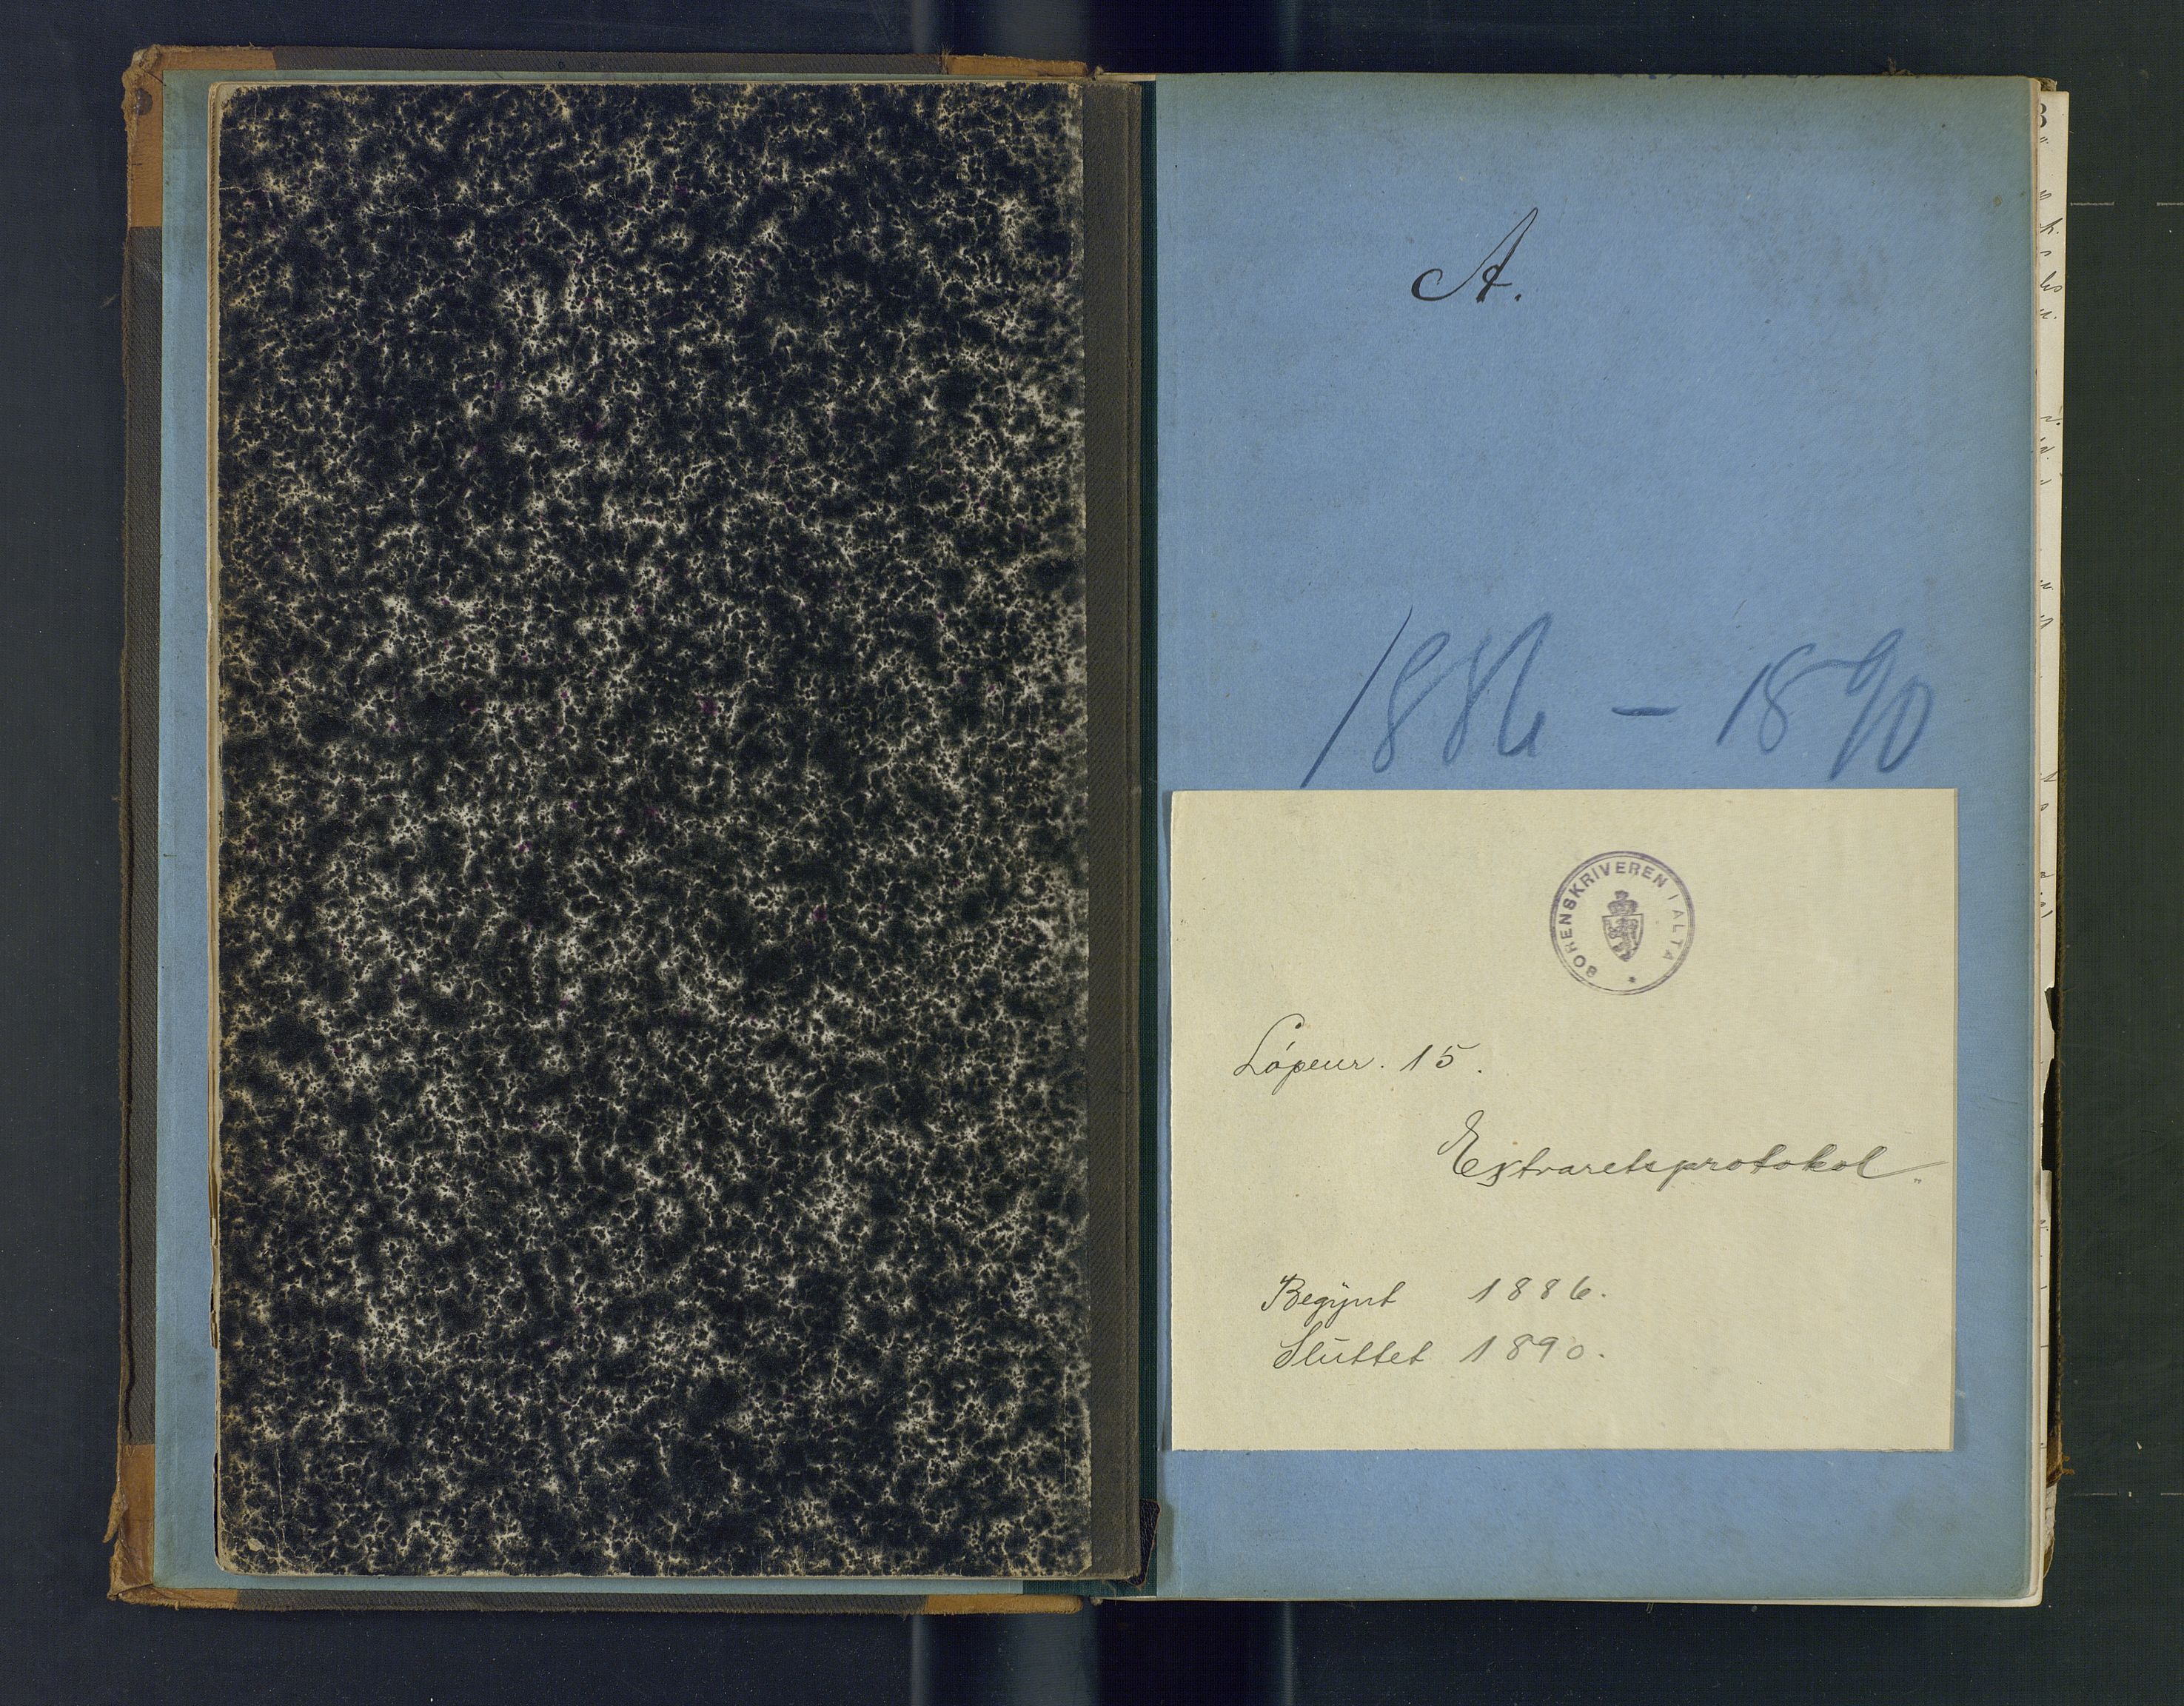 A.
1886 – 1890
SORENSKRIVEREN I ALTA
Løpenr. 15.
Extraretsprotokol.
Begynt 1886.
Sluttet 1890.